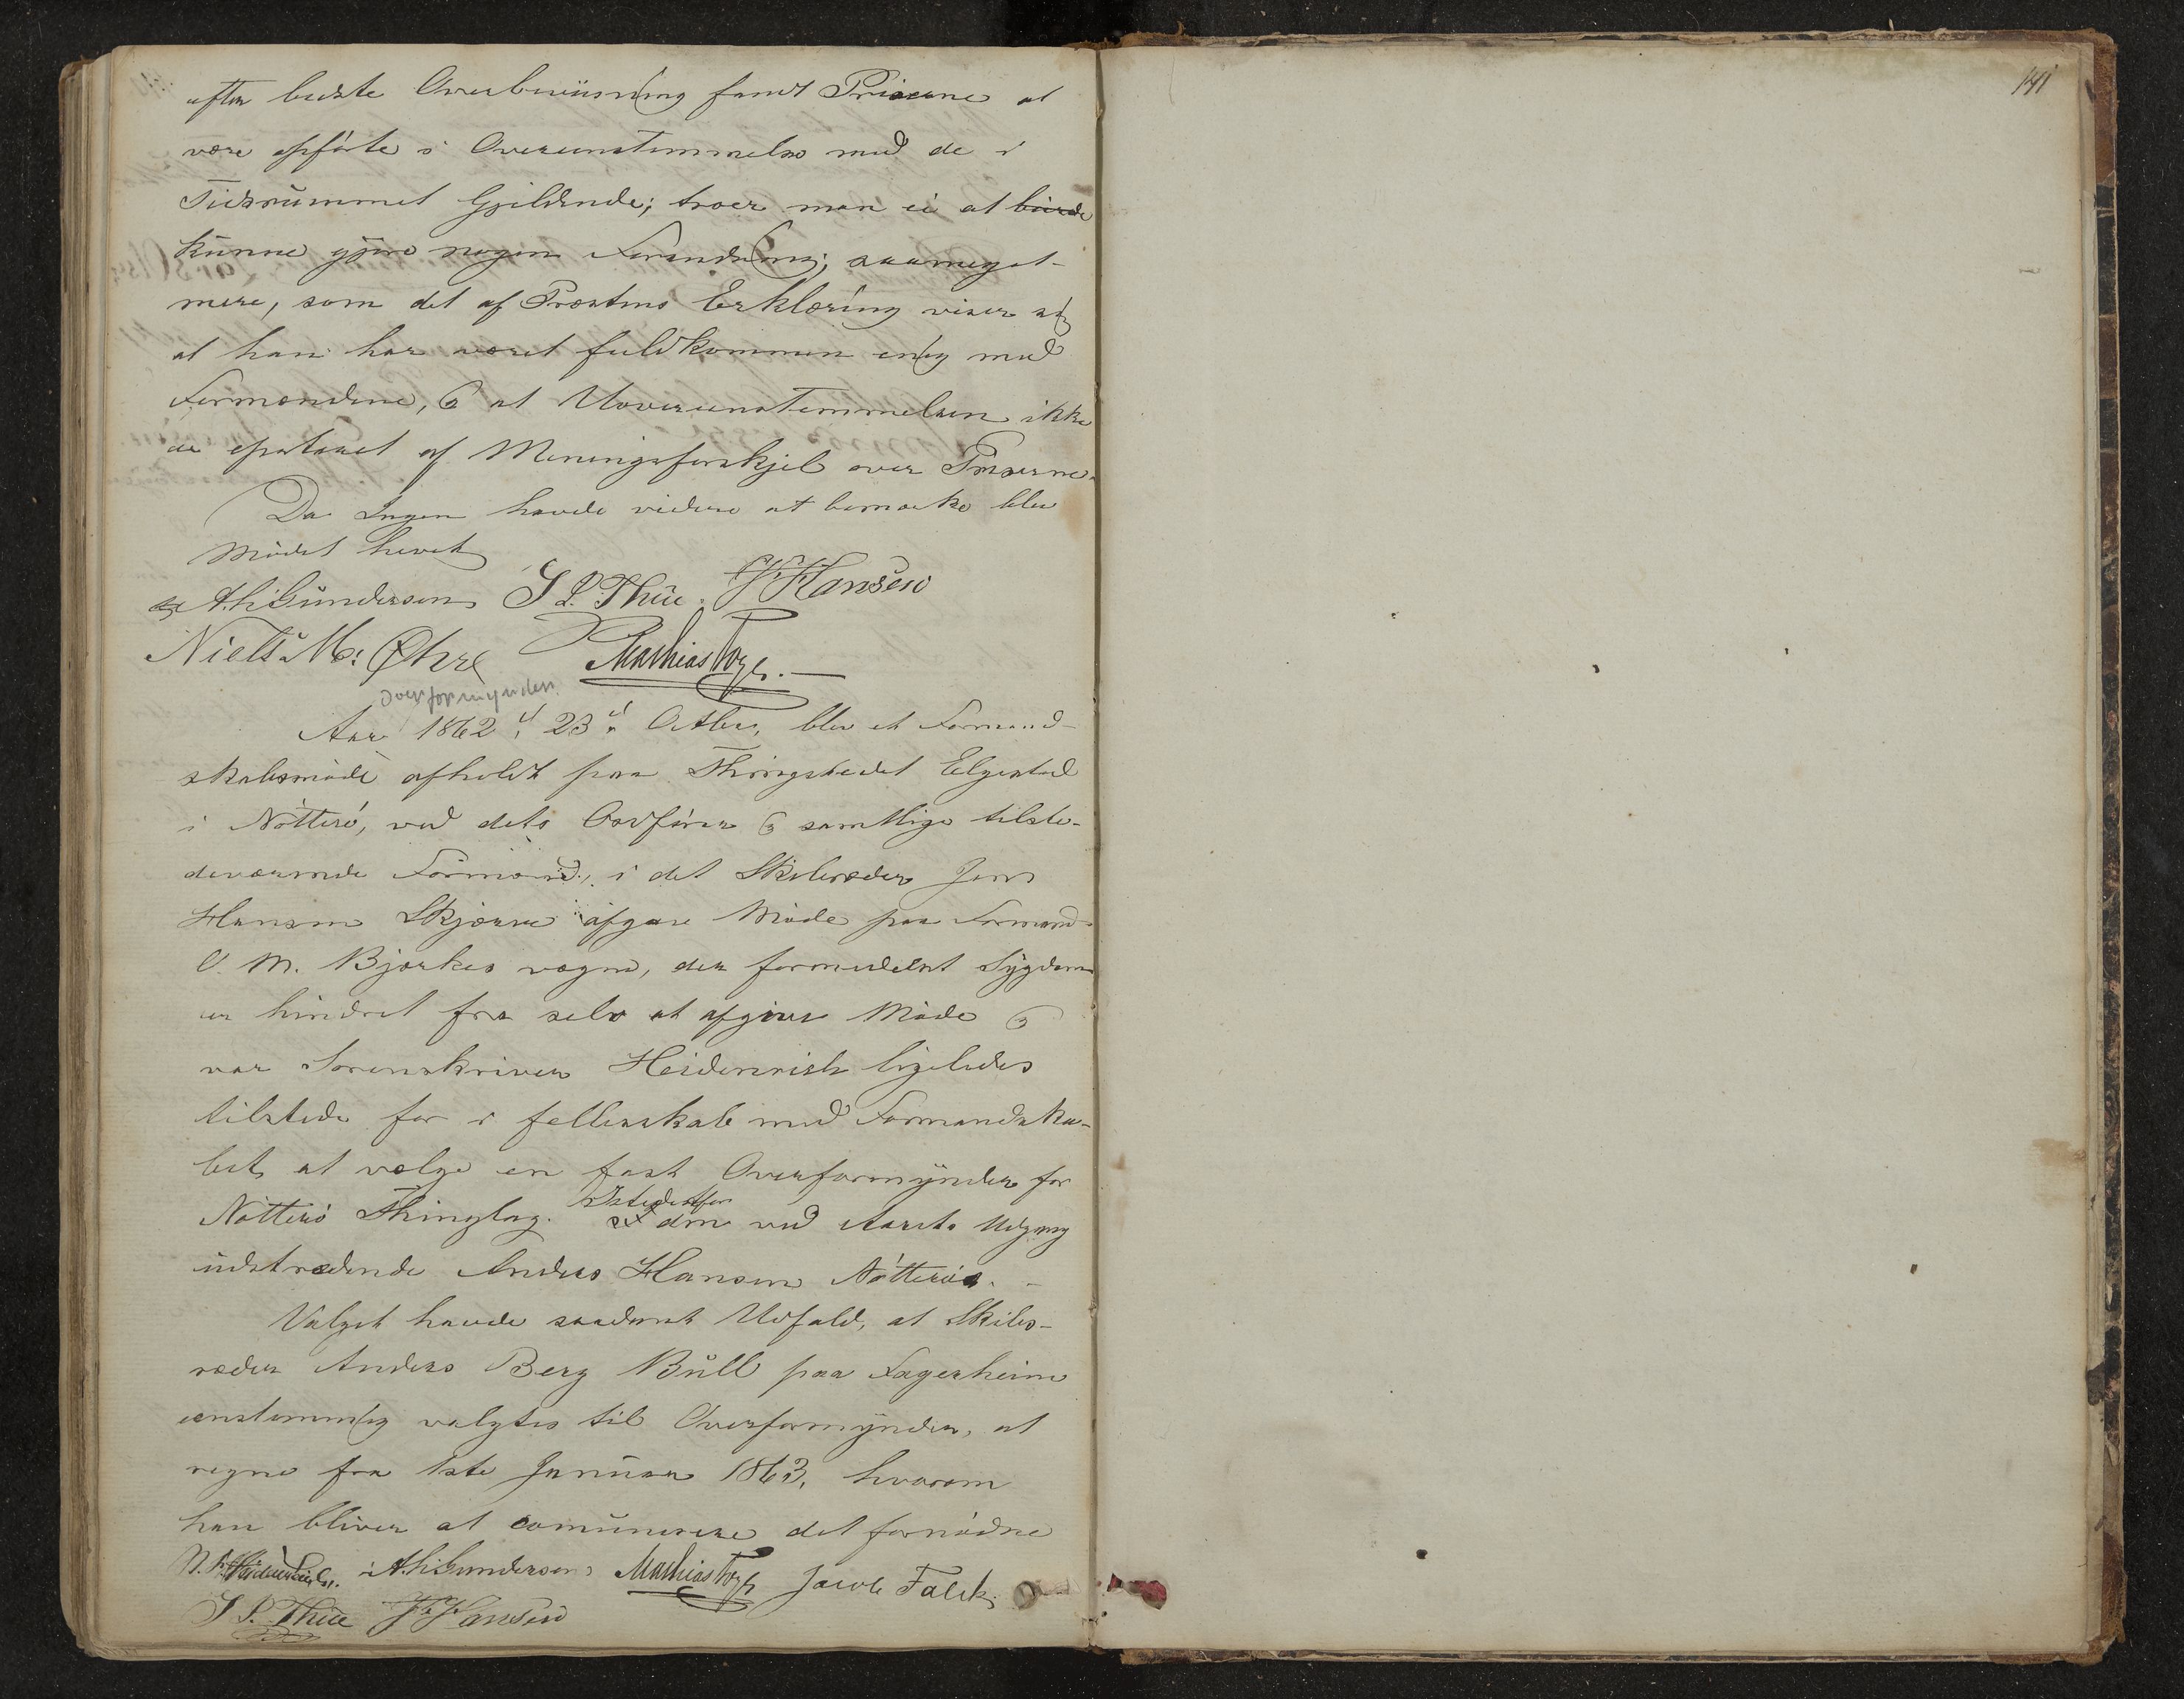 efter bedste Overbeviisning fandt Priserne at
være opførte i Overeenstemmelse med de i
Tidsrummet Gjeldende; troer man ei at burde
kunne gjøre nogen Forandring; saameget-
mere, som det af Præstens Erklæring viser sig
at han har været fuldkommen enig med
Formændene, & at Uovereenstemmelsen ikke
er opstaaet af Meningsforskjel over Priserne.
Da Ingen havde videre at bemærke blev
Mødet hevet
A. H. Gundersen S L. Thue. F Hansen
Niels M: Øhre Mathias Foyn.
Overformynder.
Aar 1862 d 23d Octbr, blev et Formand-
skabsmøde afholdt paa Thingstedet Elgestad
i Nøtterø, ved dets Ordfører & samtlige tilste-
deværende Formænd, i det Skibsreder Jens
Hansen Skjærsø afgav Møde paa Formand
O. M. Bjerkes vegne, der formedelst Sygdom
er hindret fra selv at afgive Møde &
var Sorenskriver Heidenreich ligeledes
tilstede for i fellesskab med Formandska-
bet, at vælge en fast Overformynder for
Nøtterø Thinglag. Istedetfor den ved Aarets Udgang
udtrædende Anders Hansen Nøtterø. -
Valget havde saadant Udfald, at Skibs-
reder Anders Berg Bull paa Fagerheim
eenstemmig valgtes til Overformynder, at
regne fra 1ste Januar 1863, hvorom
han bliver at comunisere det fornødne
A. H. Gundersen Mathias Foyn Jacob Falck
S L. Thue F Hansen
141